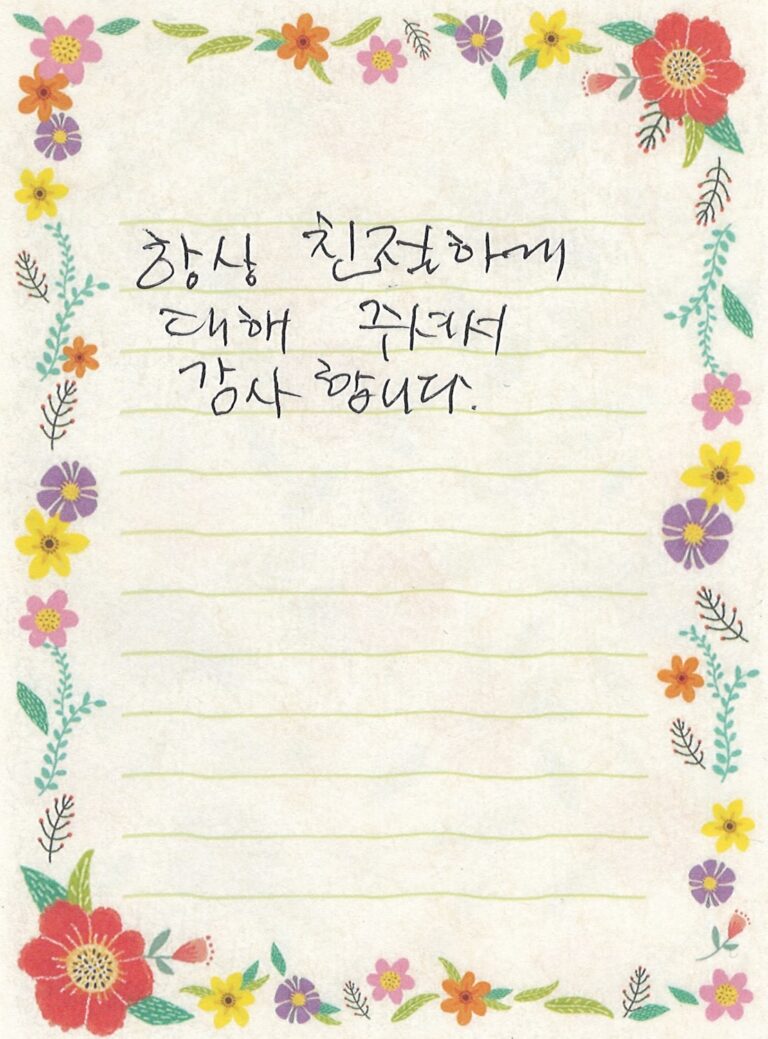 항상 친절하게
대해 쥐셔서
감사 합니다.